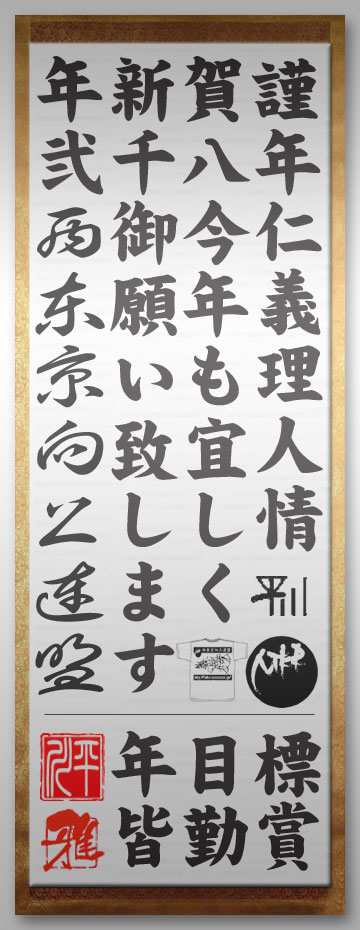 謹年仁義理人情
平川
賀八今年も宜しく
新千御願い致します
年弐
東京向
連盟
標賞
目勤
年皆
平川
雅